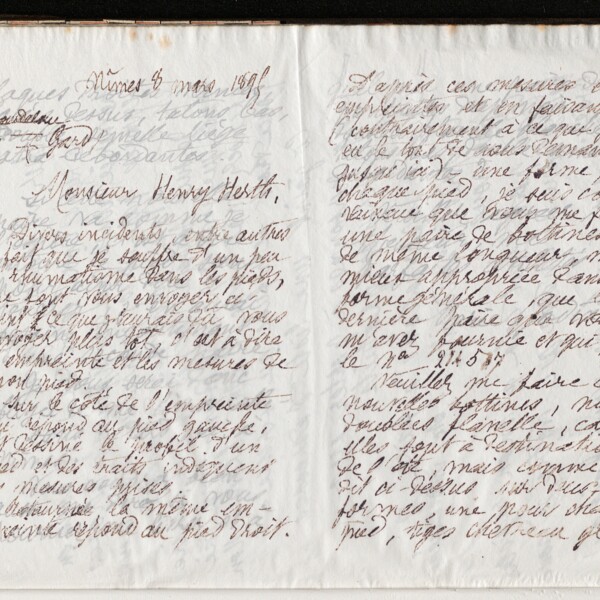 Nîmes 8 mars 189
Gard
Monsieur Henry Herth,
Divers incidents, entre autres
fait que je souffre d'un peu
rhumatisme dans les pieds,
font vous envoyer ci-
ce que j'aurais dû vous
plus tôt, c'est à dire
empreinte et les mesures de
mon pied.
sur le côté de l'empreinte
qui répond au pied gauche,
dessiné le profil d'un
pied et des traits indiquent
mesures prises.
la même em-
preinte répond au pied droit.
D'après ces mesures
empreintes et en faisant
(contrairement à ce que
eu le tort de vous
une forme
chaque pied, je suis
que vous me
une paire de bottines
de même longueur,
mieux appropriée dans
forme générale, que
dernière paire que
m'avez fournie et qui
le No
Veuillez me faire
nouvelles bottines, n
doublées flanelle, ca
elles sont à destination
de l'été, mais comme
dit ci-dessus sur deux
formes, une pour cha
pied, tiges chevreau